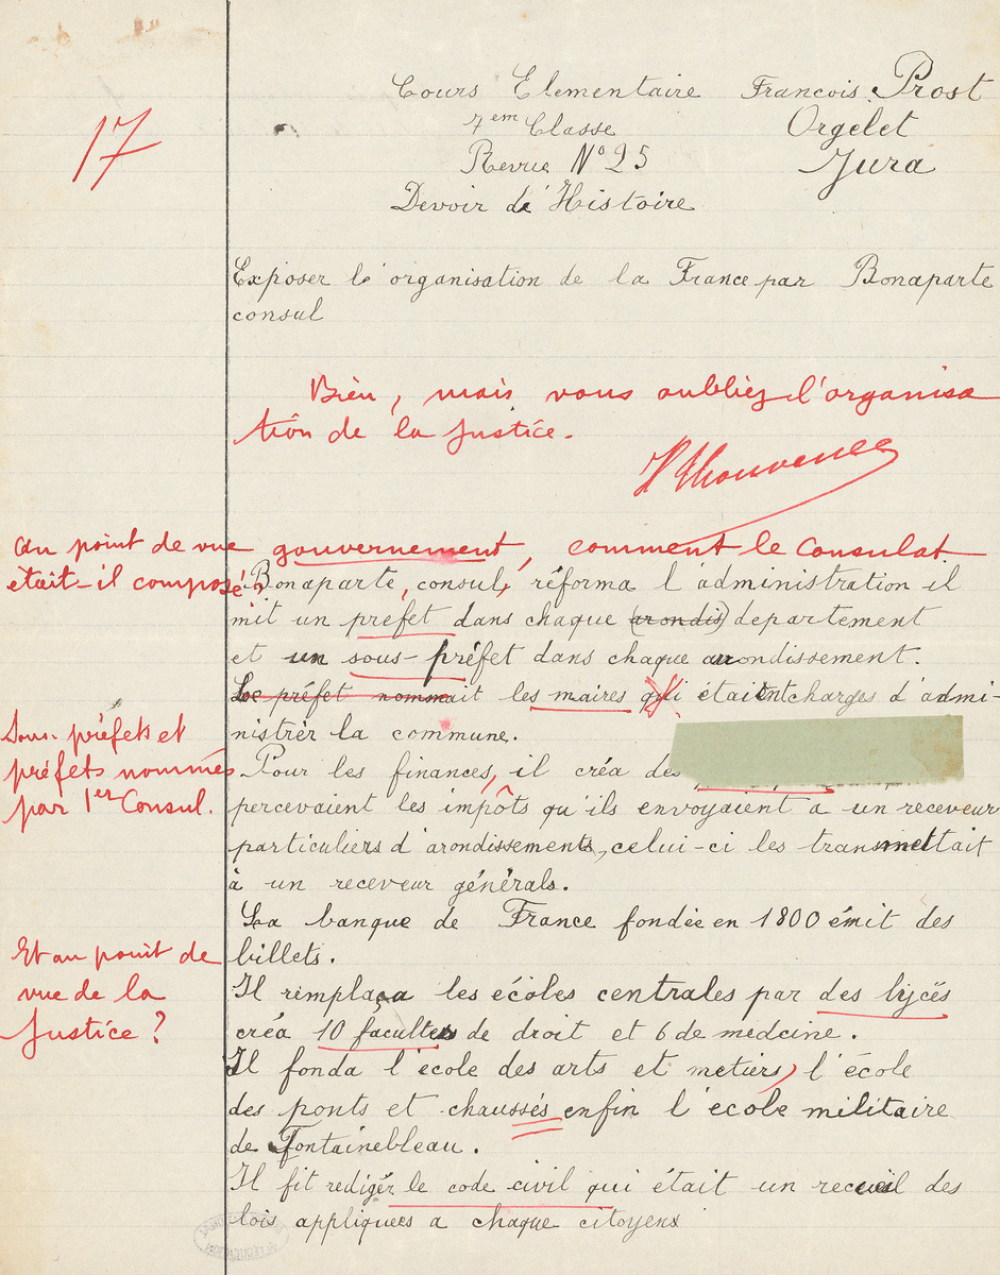 17
Cours Elementaire Francois Prost
7em Classe Orgelet
Revue N° 25 Jura
Devoir d'Histoire
Exposer l'organisation de la France par Bonaparte
consul
Bien, mais vous oubliez l'organisa
tion de la Justice.
Au point de vue gouvernement, comment le Consulat
était-il composé?
Bonaparte, consul, réforma l'administration il
mit un prefet dans chaque (arondis) departement
et un sous-préfet dans chaque arrondissement.
Le préfet nommait les maires qui étaient charges d'admi-
nistrer la commune.
Sous-préfets et
préfets nommés
par 1er Consul.
Pour les finances, il créa des
percevaient les impôts qu'ils envoyaient a un receveur
particuliers d'arondissements, celui-ci les transmettait
à un receveur générals.
La banque de France fondée en 1800 émit des
billets.
Et au point de
vue de la
Justice?
Il remplaça les écoles centrales par des lycées
créa 10 facultes de droit et 6 de medcine.
Il fonda l'école des arts et metiers, l'école
des ponts et chaussés enfin l'ecole militaire
de Fontainebleau.
Il fit rediger le code civil qui était un recueil des
lois appliquees a chaque citoyens